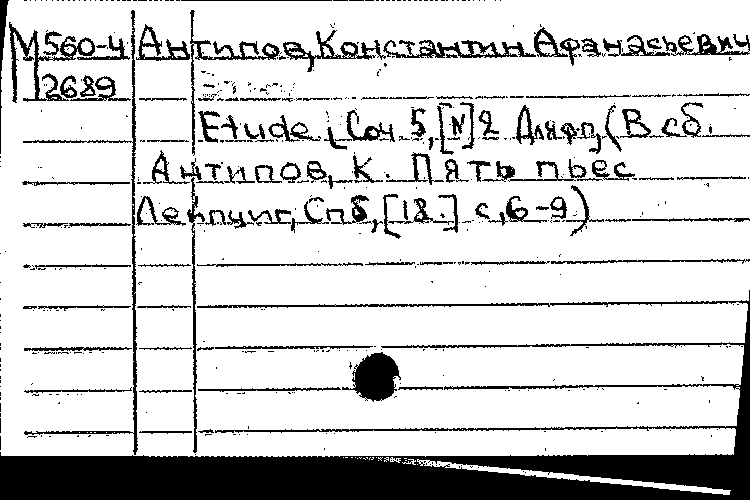 М 560-4 Антипов, Константин Афанасьевич
2689
Etude, [Соч 5, [N] 2 Для фп, (В сб.
Антипов, К. Пять пьес
Лейпциг, Спб, [18..] с, 6-9)